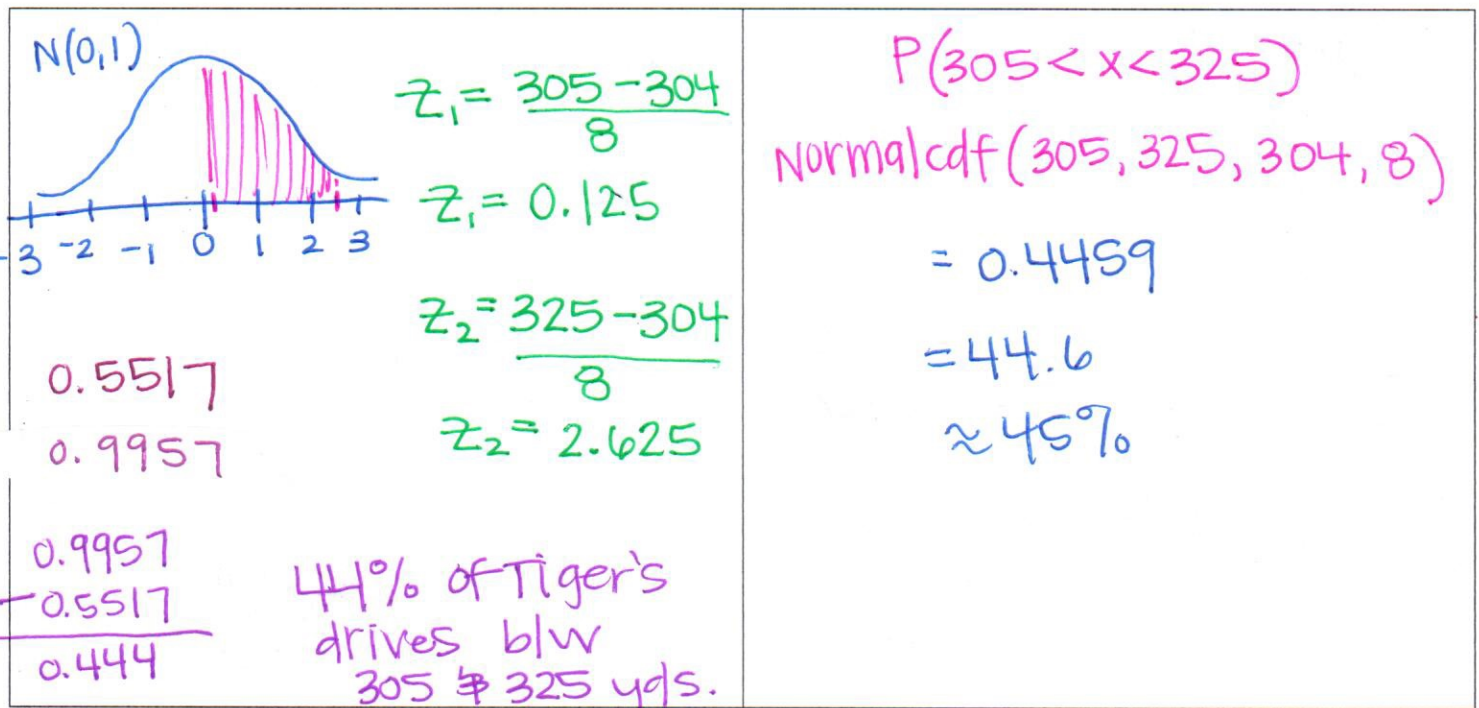 N(0,1)
-3 -2 -1 0 1 2 3
z₁ = 305-304
8
z₁ = 0.125
z₂ = 325-304
8
z₂ = 2.625
0.5517
0.9957
0.9957
-0.5517
0.444
44% of Tiger's
drives b/w
305 & 325 yds.
P(305<x<325)
Normalcdf(305, 325, 304, 8)
= 0.4459
=44.6
≈45%